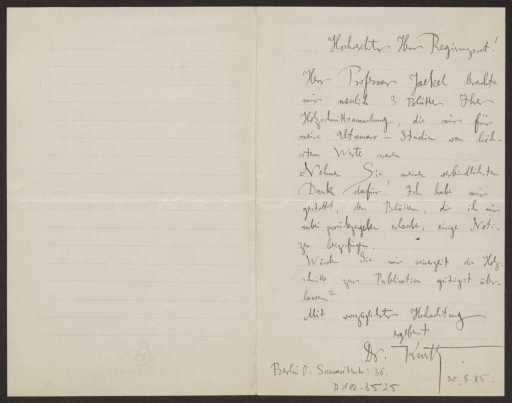 Hochgeehrter Herr Regierungsrat!
Herr Professor Jaekel brachte
mir neulich 3 Blätter Ihrer
Holzschnittsammlung, die mir für
meine Utamaro-Studien von höch-
stem Werte waren.
Nehmen Sie meinen verbindlichsten
Dank dafür! Ich habe mir
gestattet, den Blättern, die ich mir
zurückzugeben erlaube, einige Noti-
zen beizufügen.
Würden Sie mir die Holz-
schnitte zur Publikation gütigst über-
lassen?
Mit vorzüglicher Hochachtung
ergebenst
Dr. Kurth
Berlin O. Samariterstr. 36.
D